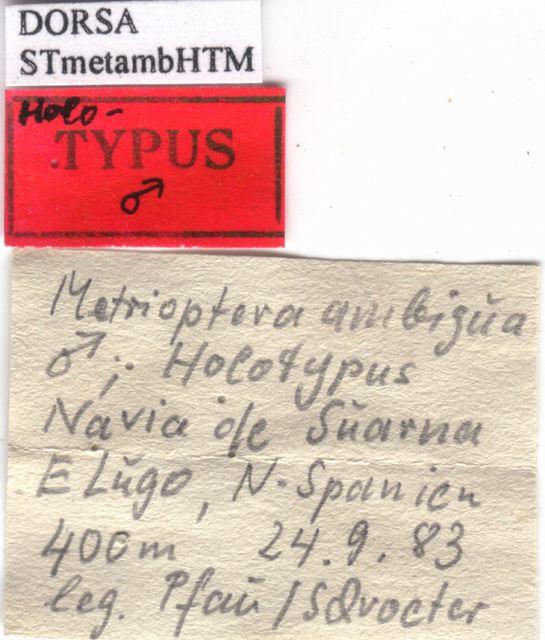 DORSA
STmetambHTM
Holo-
TYPUS
♂
Metrioptera ambigŭa
♂; Holotypus
Navia de Sŭarna
E Lŭgo, N-Spanien
400m 24.9.83
leg. Pfaŭ/